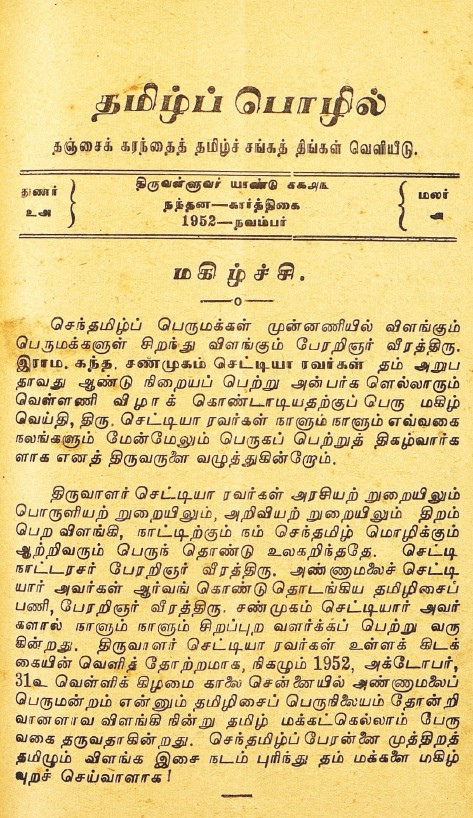 தமிழ்ப் பொழில்
தஞ்சைக் கரந்தைத் தமிழ்ச் சங்கத் திங்கள் வெளியீடு.
துணர்
உஅ
திருவள்ளுவர் யாண்டு ககஅங
நந்தன—கார்த்திகை
1952—நவம்பர்
மலர்
அ
மகிழ்ச்சி.
செந்தமிழ்ப் பெருமக்கள் முன்னணியில் விளங்கும்
பெருமக்களுள் சிறந்து விளங்கும் பேரறிஞர் வீரத்திரு.
இராம. கந்த. சண்முகம் செட்டியா ரவர்கள் தம் அறுப
தாவது ஆண்டு நிறையப் பெற்று அன்பர்க ளெல்லாரும்
வெள்ளணி விழாக் கொண்டாடியதற்குப் பெரு மகிழ்
வெய்தி, திரு. செட்டியா ரவர்கள் நாளும் நாளும் எவ்வகை
நலங்களும் மேன்மேலும் பெருகப் பெற்றுத் திகழ்வார்க
ளாக எனத் திருவருளை வழுத்துகின்றேம்.
திருவாளர் செட்டியா ரவர்கள் அரசியற் றுறையிலும்
பொருளியற் றுறையிலும், அறிவியற் றுறையிலும் திறம்
பெற விளங்கி, நாட்டிற்கும் நம் செந்தமிழ் மொழிக்கும்
ஆற்றிவரும் பெருந் தொண்டு உலகறிந்ததே. செட்டி
நாட்டரசர் பேரறிஞர் வீரத்திரு. அண்ணாமலைச் செட்டி
யார் அவர்கள் ஆர்வங் கொண்டு தொடங்கிய தமிழிசைப்
பணி, பேரறிஞர் வீரத்திரு. சண்முகம் செட்டியார் அவர்
களால் நாளும் நாளும் சிறப்புற வளர்க்கப் பெற்று வரு
கின்றது. திருவாளர் செட்டியா ரவர்கள் உள்ளக் கிடக்
கையின் வெளித் தோற்றமாக, நிகழும் 1952, அக்டோபர்,
31உ வெள்ளிக் கிழமை காலை சென்னையில் அண்ணாமலைப்
பெருமன்றம் என்னும் தமிழிசைப் பெருநிலையம் தோன்றி
வானளாவ விளங்கி நின்று தமிழ் மக்கட்கெல்லாம் பேரு
வகை தருவதாகின்றது. செந்தமிழ்ப்பேரன்னை முத்திறத்
தமிழும் விளங்க இசை நடம் புரிந்து தம் மக்களை மகிழ்
வுறச் செய்வாளாக!